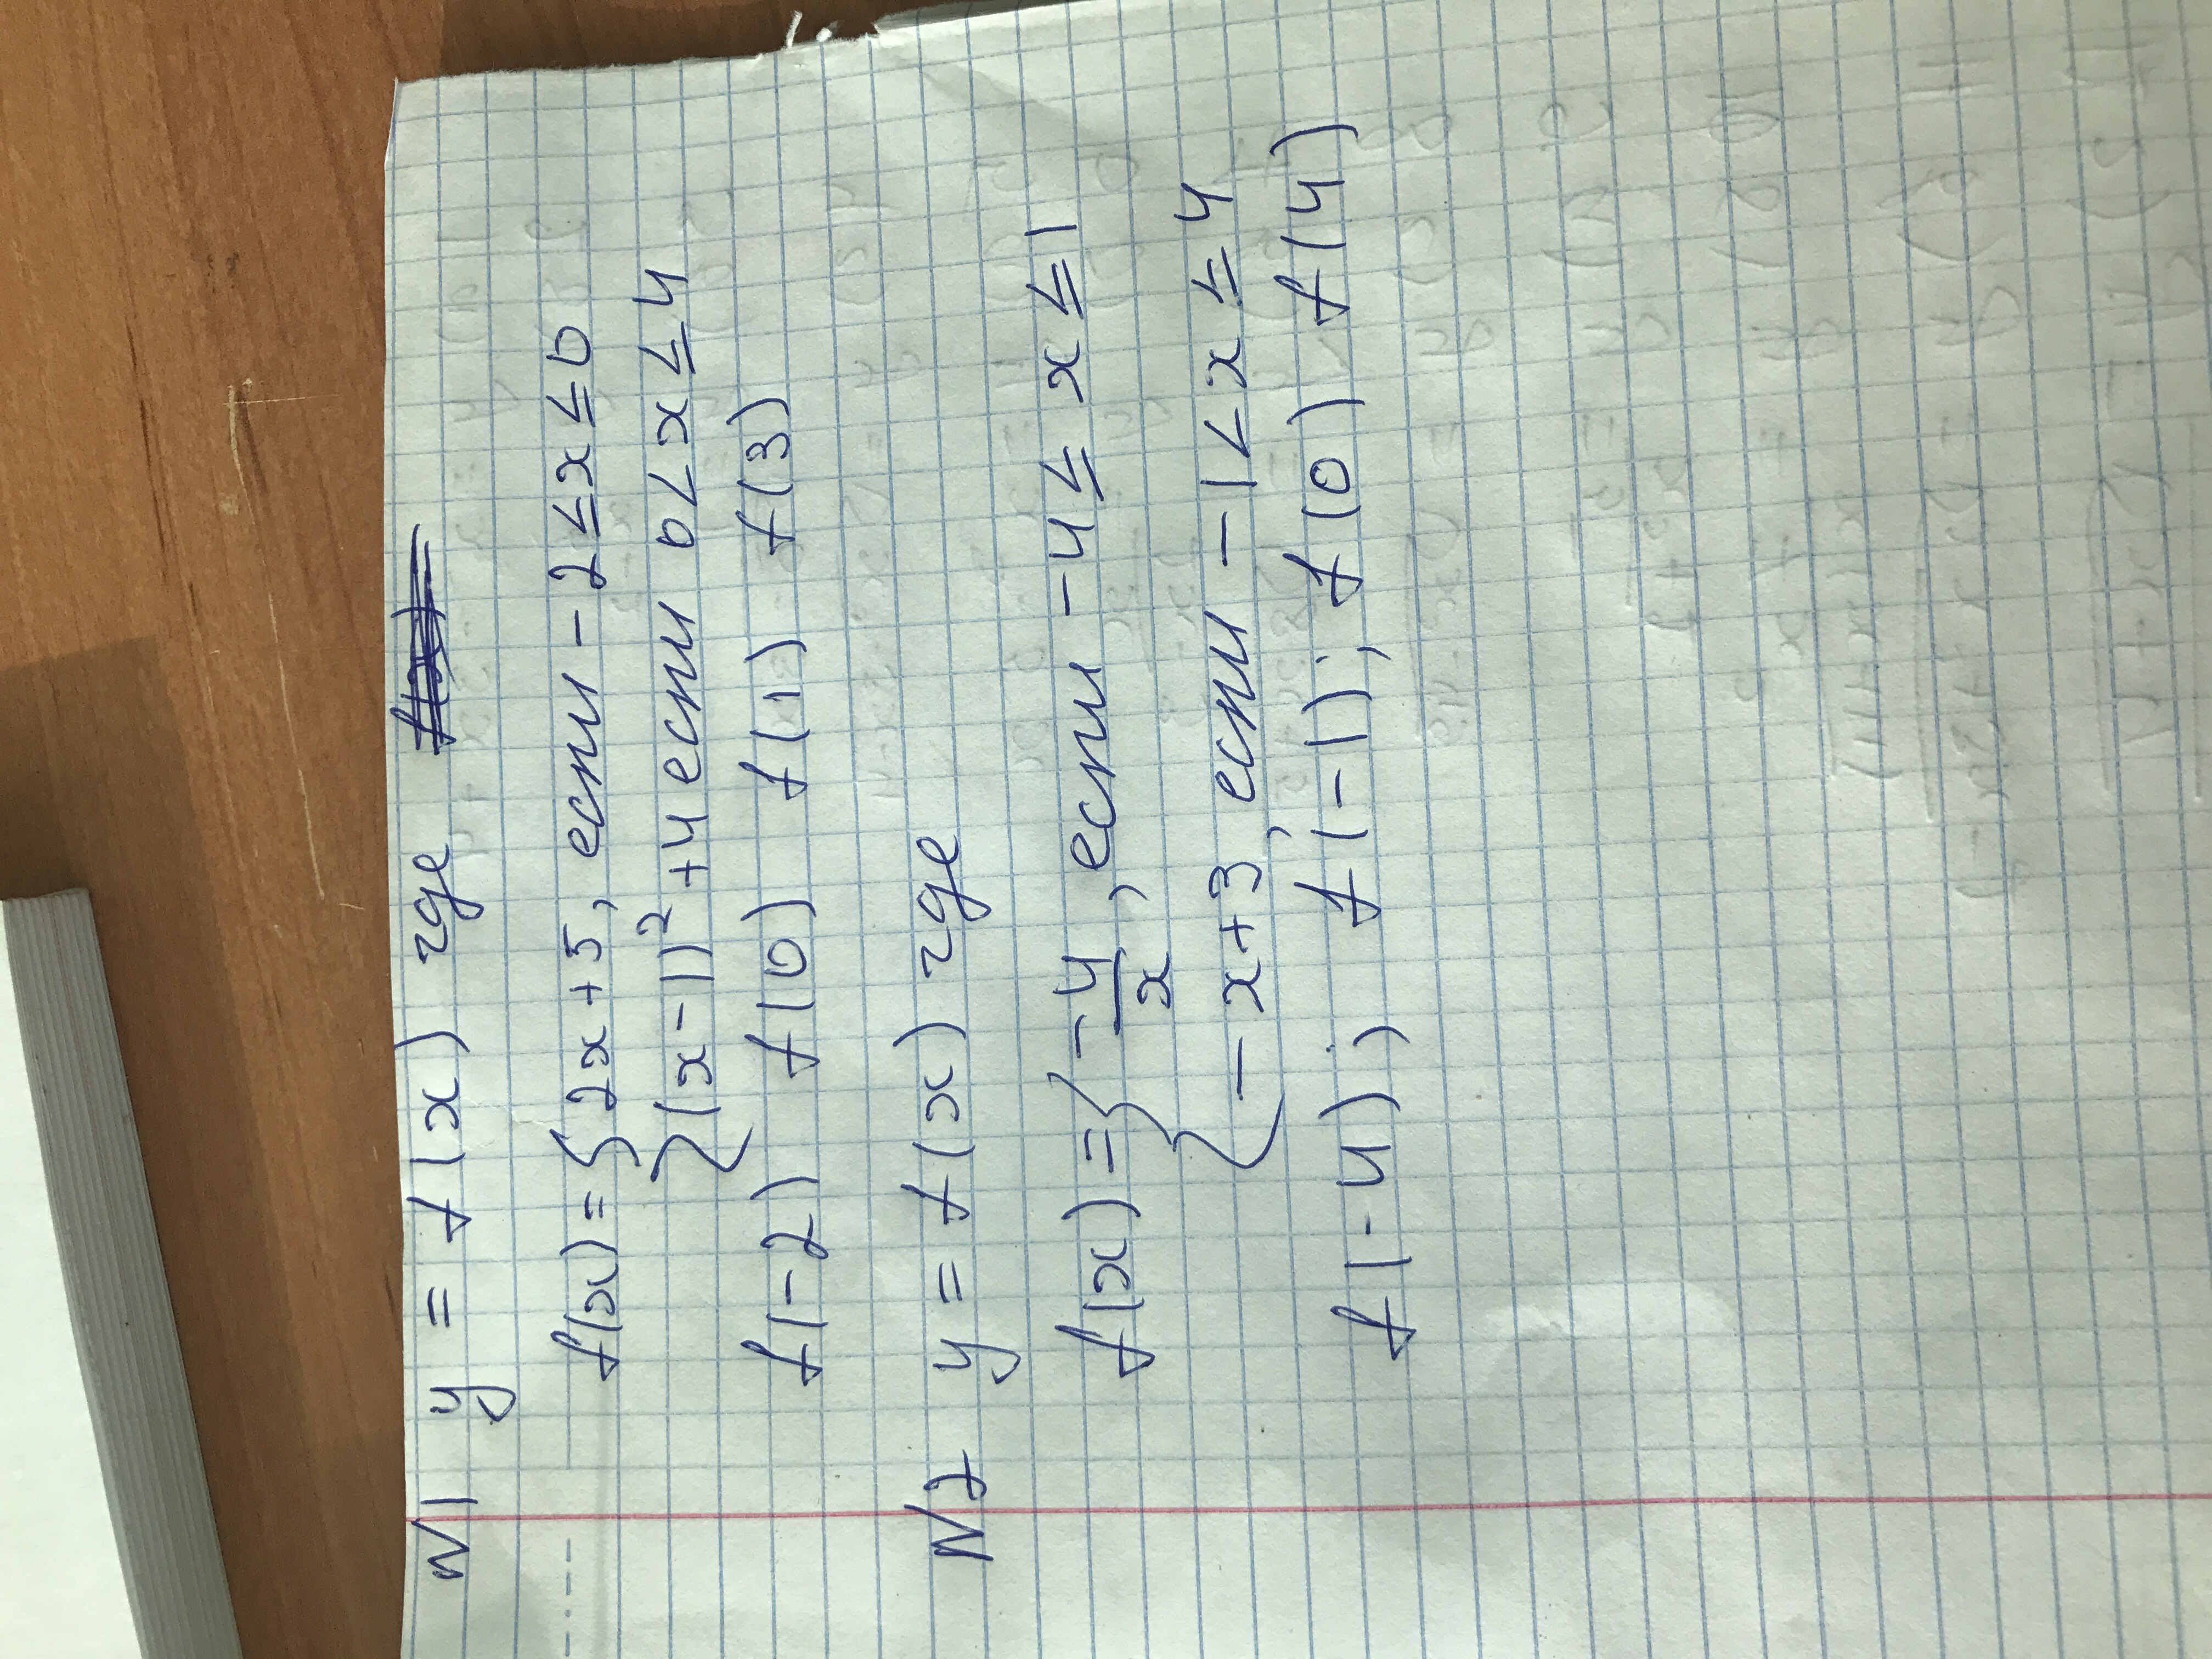 N1 y = f(x) где
f(x) = { 2x+5, если -2≤x≤0
{ (x-1)²+4 если 0<x≤4
f(-2) f(0) f(1) f(3)
N2 y = f(x) где
f(x) = { -4/x, если -4≤x≤1
{ -x+3, если -1<x≤4
f(-4); f(-1); f(0) f(4)